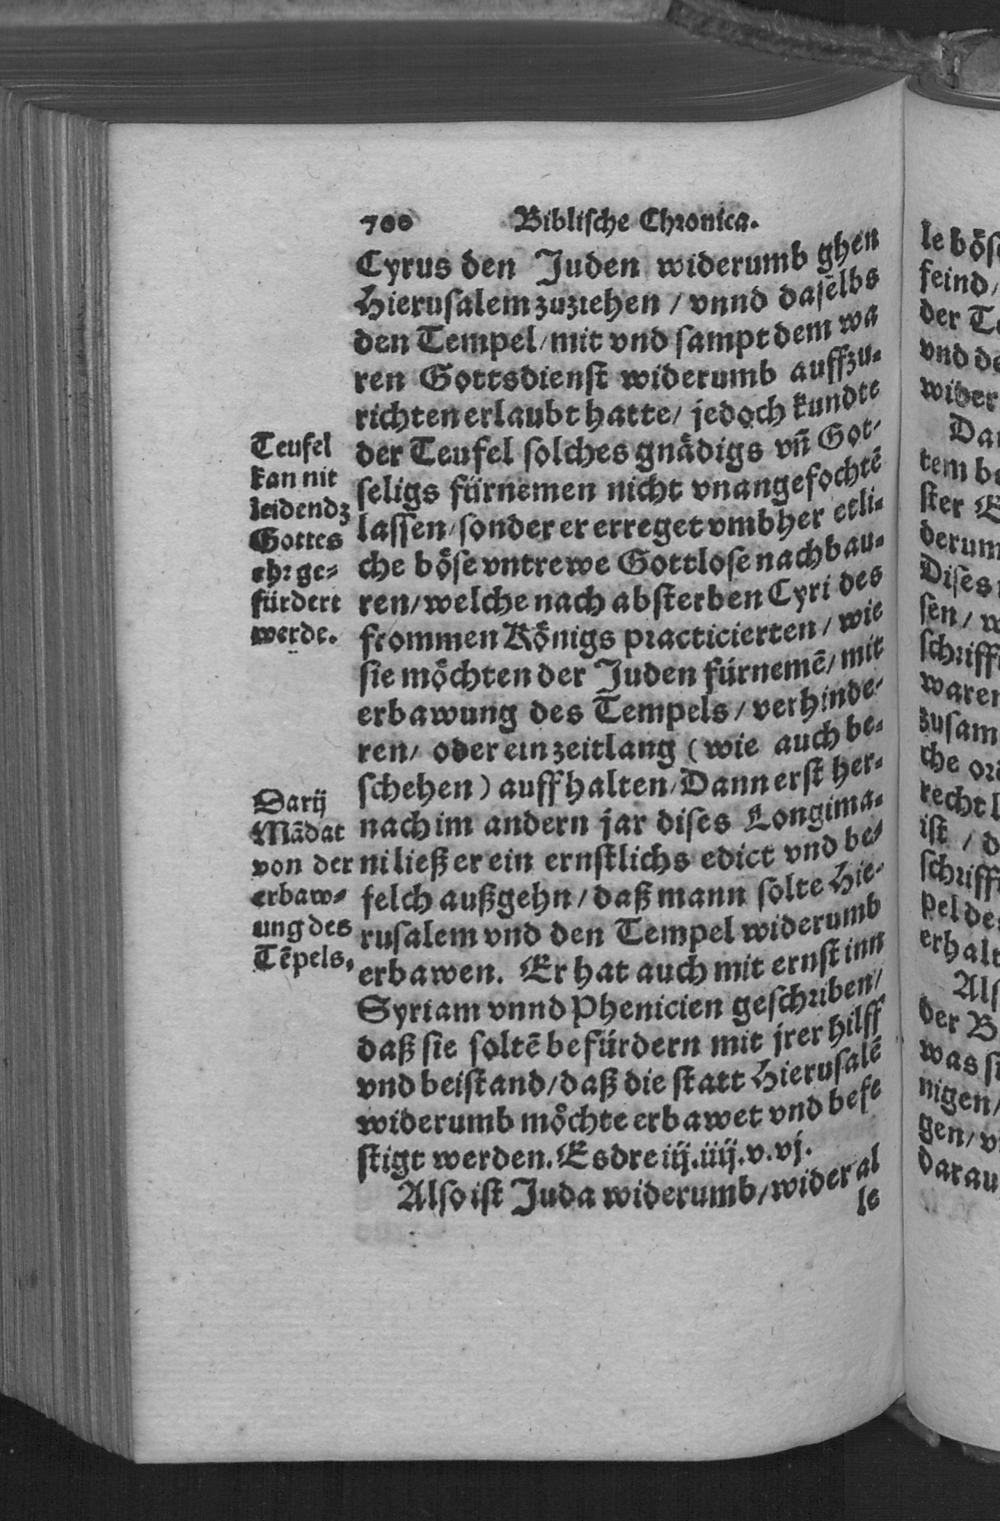 700 Biblische Chronica.
Cyrus den Juden widerumb ghen
Hierusalem zuziehen / vnnd daselbs
den Tempel / mit vnd sampt dem wa
ren Gottsdienst widerumb auffzu-
richten erlaubt hatte / jedoch kundte
der Teufel solches gnådigs vñ Got-
seligs fürnemen nicht vnangefochtē
lassen / sonder er erreget vmbher etli-
che böse vntrewe Gottlose nachbau-
ren / welche nach absterben Cyri des
frommen Königs practicierten / wie
sie möchten der Juden fürnemē / mit
erbawung des Tempels / verhinde-
ren / oder ein zeitlang ( wie auch be-
schehen ) auffhalten / Dann erst her-
nach im andern jar dises Longima-
ni ließ er ein ernstlichs edict vnd be-
felch außgehn / daß mann solte Hie-
rusalem vnd den Tempel widerumb
erbawen. Er hat auch mit ernst inn
Syriam vnnd Phenicien geschriben /
daß sie soltē befürdern mit jrer hilff
vnd beistand / daß die statt Hierusalē
widerumb möchte erbawet vnd befe
stigt werden. Esdre iij. iiij. v. vj.
Also ist Juda widerumb / wider al
le
Teufel
kan nit
leidendz
Gottes
ehr ge-
fürdert
werde.
Darij
Mādat
von der
erbaw-
ung des
Tēpels.
le böse
feind /
der Te
vnd de
wider
Dar
tem be
ster E
derum
Dises
sen / w
schriff
waren
zusam
che or
recht l
ist / d
schriff
pel de
erhalt
Als
der B
was si
nigen /
gen / v
darau